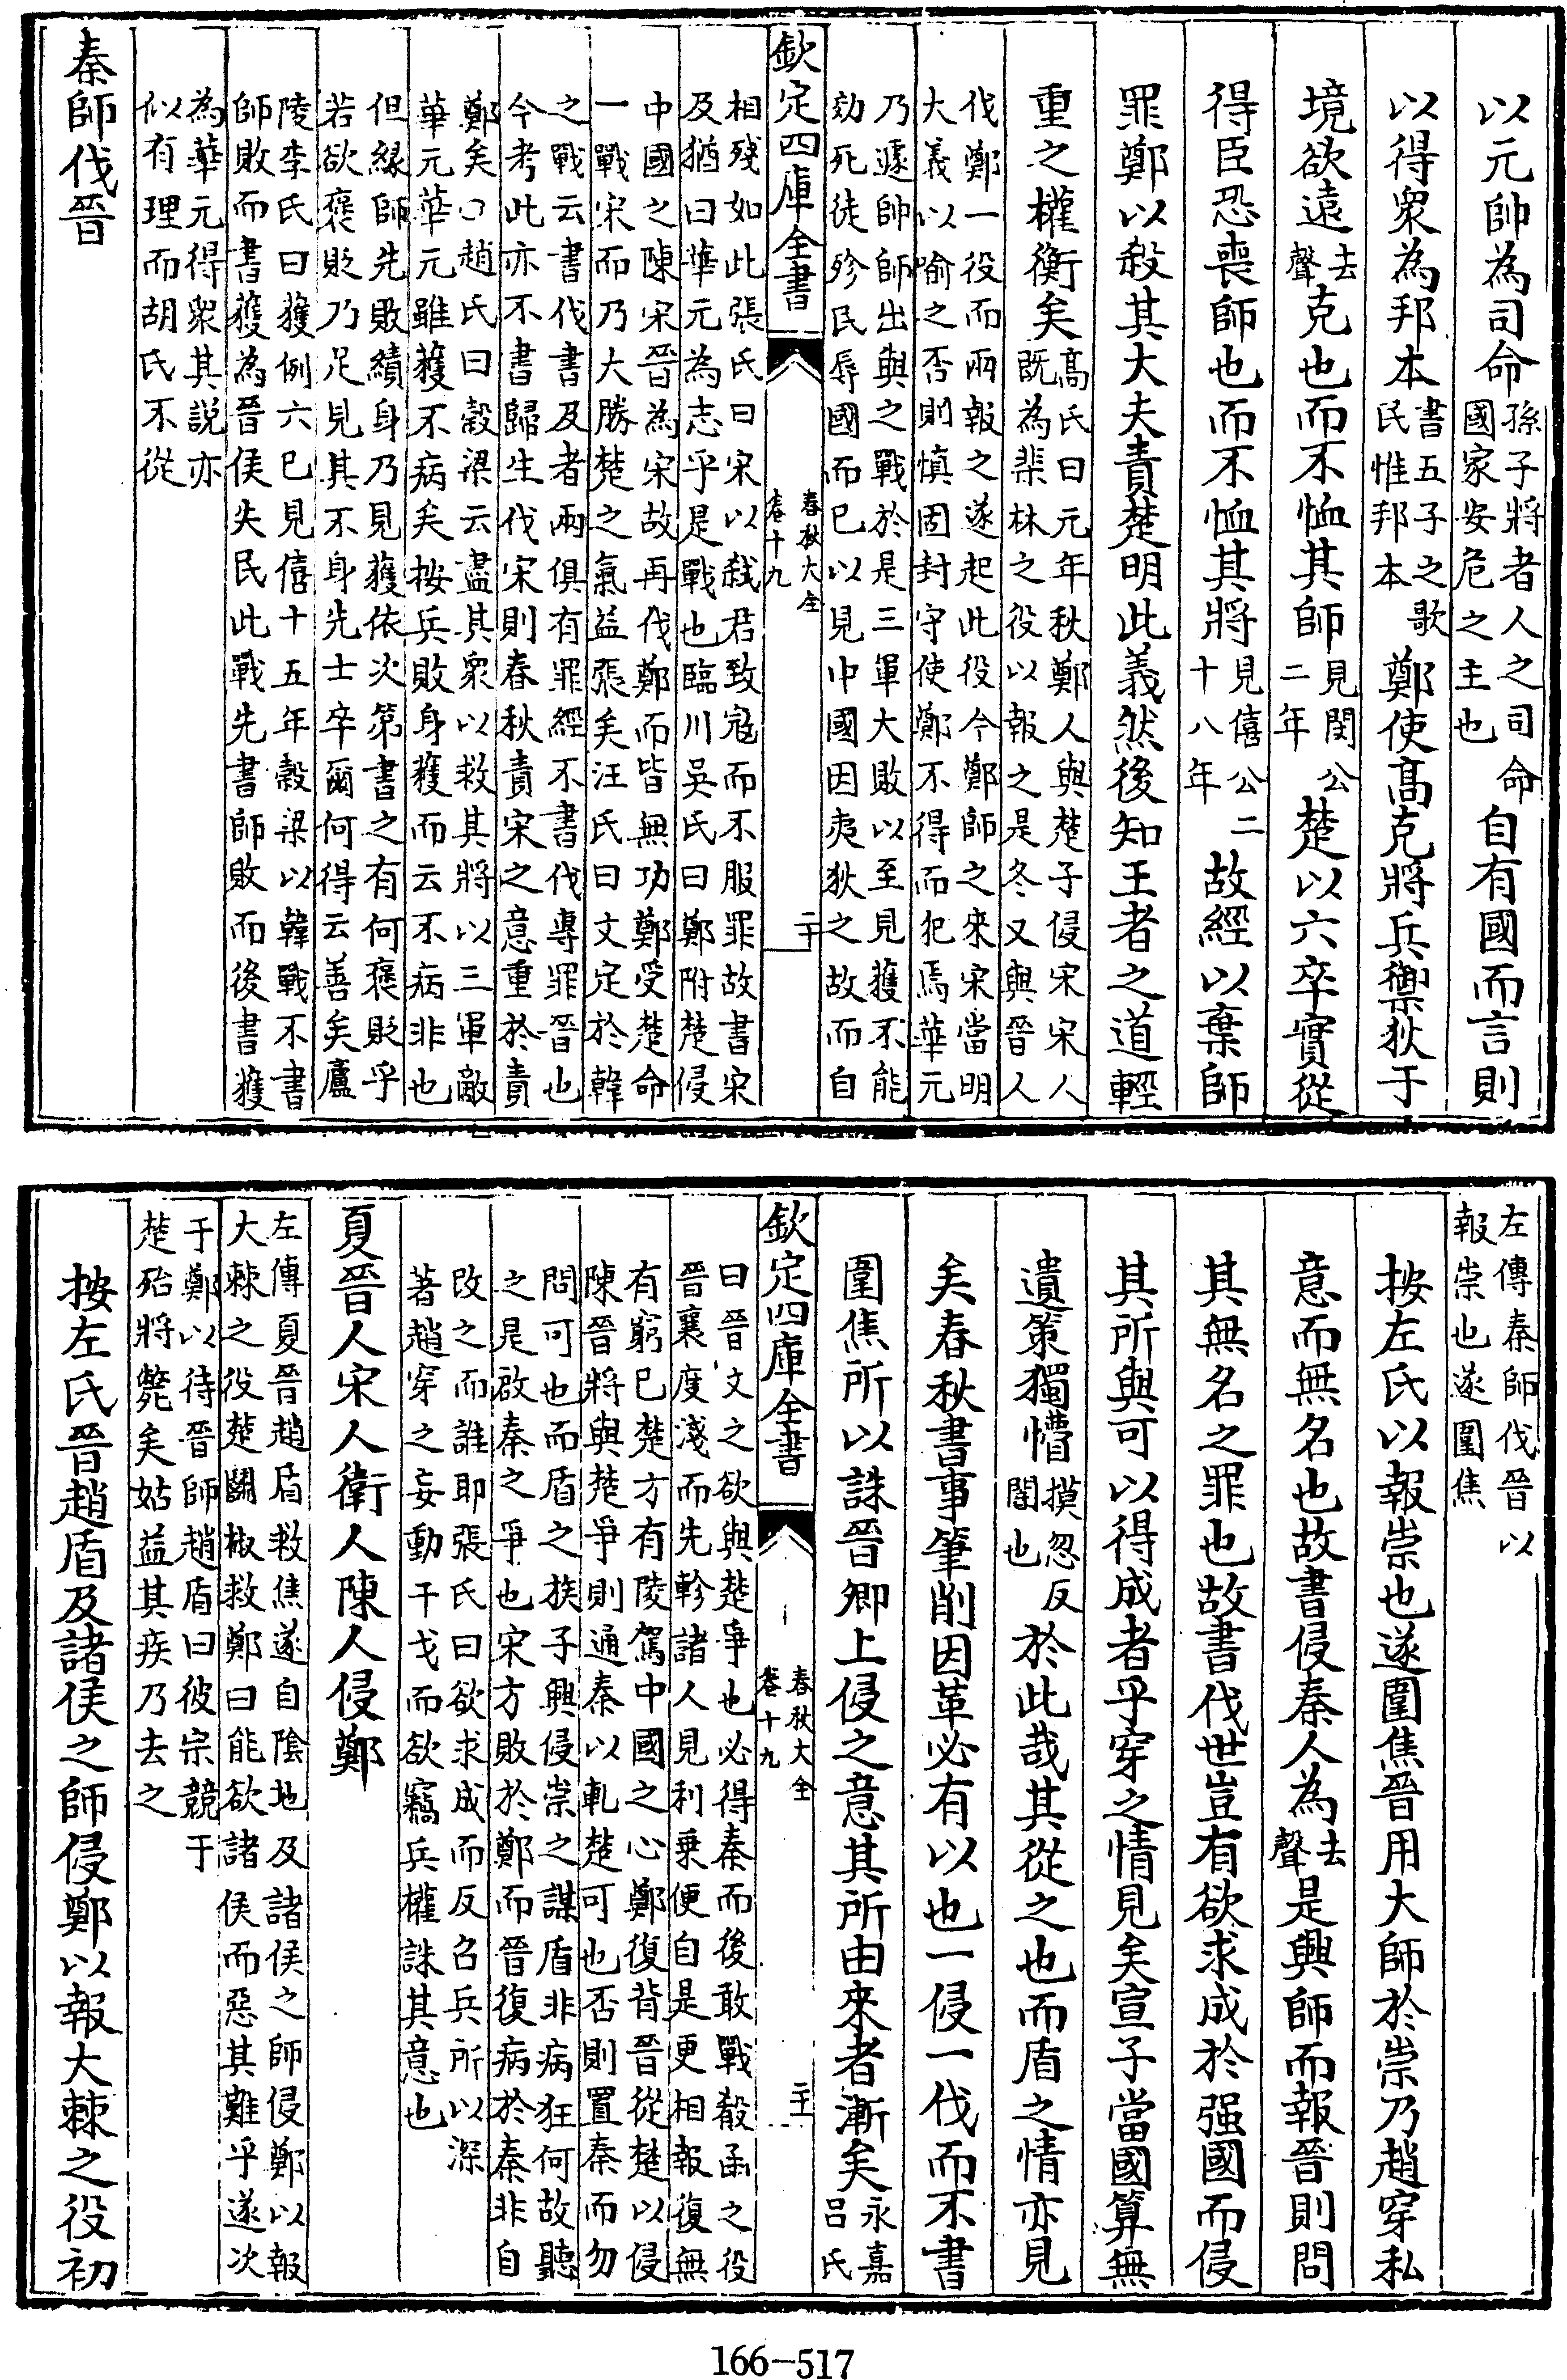 以元帥為司命孫子將者人之司命國家安危之主也自有國而言則
以得衆為邦本書五子之歌民惟邦本鄭使髙克將兵禦狄于
境欲逺去聲克也而不恤其師見閔公二年楚以六卒實從
得臣恐喪師也而不恤其將見僖公二十八年故經以棄師
罪鄭以殺其大夫責楚明此義然後知王者之道輕
重之權衡矣髙氏曰元年秋鄭人與楚子侵宋宋人既為棐林之役以報之是冬又與晉人
伐鄭一役而兩報之遂起此役今鄭師之來宋當明大義以喻之否則慎固封守使鄭不得而犯焉華元
乃遽帥師出與之戰於是三軍大敗以至見獲不能効死徒殄民辱國而已以見中國因夷狄之故而自
欽定四庫全書
春秋大全
卷十九
二十
相殘如此張氏曰宋以弑君致寇而不服罪故書宋及猶曰華元為志乎是戰也臨川吳氏曰鄭附楚侵
中國之陳宋晉為宋故再伐鄭而皆無功鄭受楚命一戰宋而乃大勝楚之氣益張矣汪氏曰文定於韓
之戰云書伐書及者兩俱有罪經不書伐專罪晉也今考此亦不書歸生伐宋則春秋責宋之意重於責
鄭矣○趙氏曰穀梁云盡其衆以救其將以三軍敵華元華元雖獲不病矣按兵敗身獲而云不病非也
但緣師先敗績身乃見獲依次第書之有何褒貶乎若欲褒貶乃足見其不身先士卒爾何得云善矣廬
陵李氏曰獲例六已見僖十五年穀梁以韓戰不書師敗而書獲為晉侯失民此戰先書師敗而後書獲
為華元得衆其説亦似有理而胡氏不從
秦師伐晉
左傳秦師伐晉以報崇也遂圍焦
按左氏以報崇也遂圍焦晉用大師於崇乃趙穿私
意而無名也故書侵秦人為去聲是興師而報晉則問
其無名之罪也故書伐世豈有欲求成於强國而侵
其所與可以得成者乎穿之情見矣宣子當國算無
遺策獨懵摸忽反闇也於此哉其從之也而盾之情亦見
矣春秋書事筆削因革必有以也一侵一伐而不書
圍焦所以誅晉卿上侵之意其所由來者漸矣永嘉吕氏
欽定四庫全書
春秋大全
卷十九
二十一
曰晉文之欲與楚爭也必得秦而後敢戰殽函之役晉襄度淺而先軫諸人見利乗便自是更相報復無
有窮已楚方有陵駕中國之心鄭復背晉從楚以侵陳晉將與楚爭則通秦以軋楚可也否則置秦而勿
問可也而盾之族子興侵崇之謀盾非病狂何故聽之是啟秦之爭也宋方敗於鄭而晉復病於秦非自
改之而誰耶張氏曰欲求成而反召兵所以深著趙穿之妄動干戈而欲竊兵權誅其意也
夏晉人宋人衛人陳人侵鄭
左傳夏晉趙盾救焦遂自陰地及諸侯之師侵鄭以報大棘之役楚鬭椒救鄭曰能欲諸侯而惡其難乎遂次
于鄭以待晉師趙盾曰彼宗競于楚殆將斃矣姑益其疾乃去之
按左氏晉趙盾及諸侯之師侵鄭以報大棘之役初
166-517